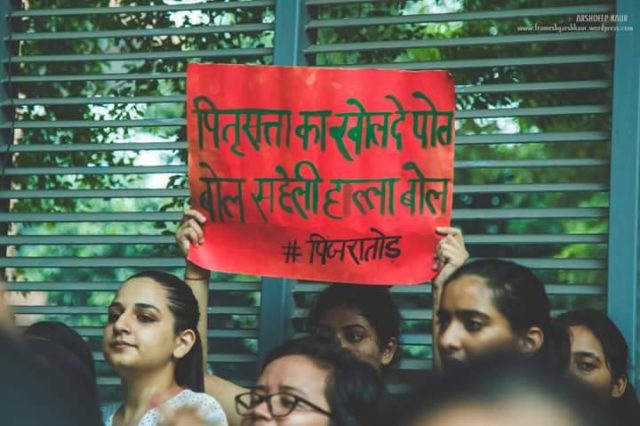 ARSHDEEP KAUR
www.framesbyarshkaur.wordpress.com
पितृसत्ता का खोल दे पोल
बोल सहेली हल्ला बोल
# पिंजरातोड़